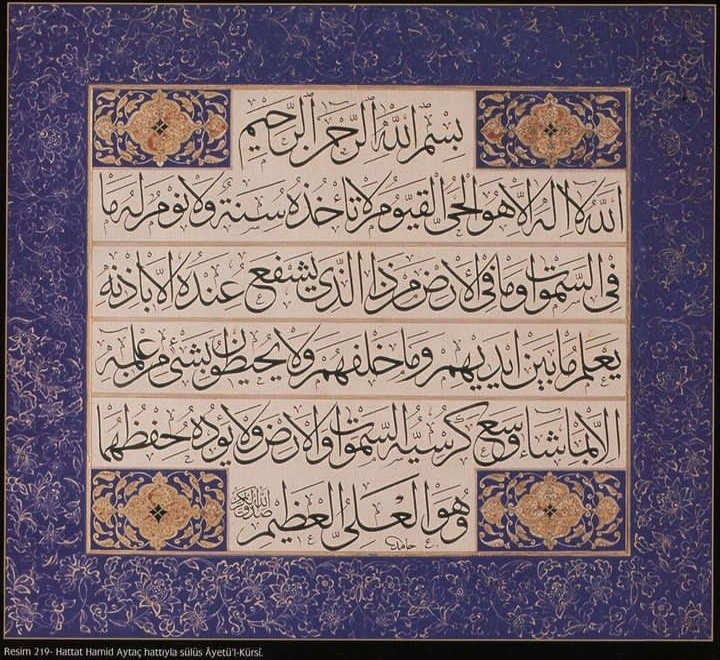 بسم الله الرحمن الرحيم
الله لا اله الا هو الحى القيوم لا تأخذه سنة ولا نوم له ما
فى السموات وما فى الارض من ذا الذى يشفع عنده الا باذنه
يعلم ما بين ايديهم وما خلفهم ولا يحيطون بشئ من علمه
الا بما شاء وسع كرسيه السموات والارض ولا يؤده حفظهما
وهو العلى العظيم
حامد
Resim 219- Hattat Hamid Aytaç hattıyla sülüs Âyetü'l-Kürsî.